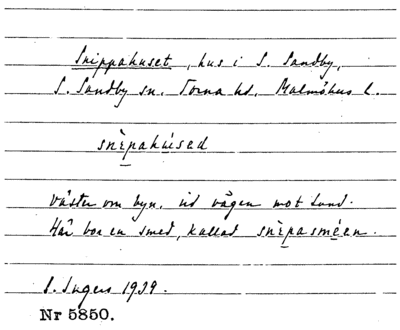 Snippahuset, hus i S. Sandby,
S. Sandby sn. Torna hd. Malmöhus l.
snìpahúsed
Väster om byn, vid vägen mot Lund.
Här bor en smed, kallad snìpasméen.
I. Ingers 1939.
Nr 5850.